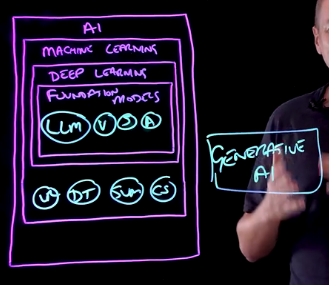 AI
MACHINE LEARNING
DEEP LEARNING
FOUNDATION
MODELS
LLM V S A
DT SVM CS
GENERATIVE
AI